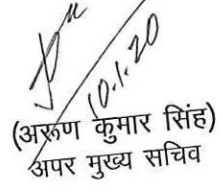 10.1.20
(अरूण कुमार सिंह)
अपर मुख्य सचिव